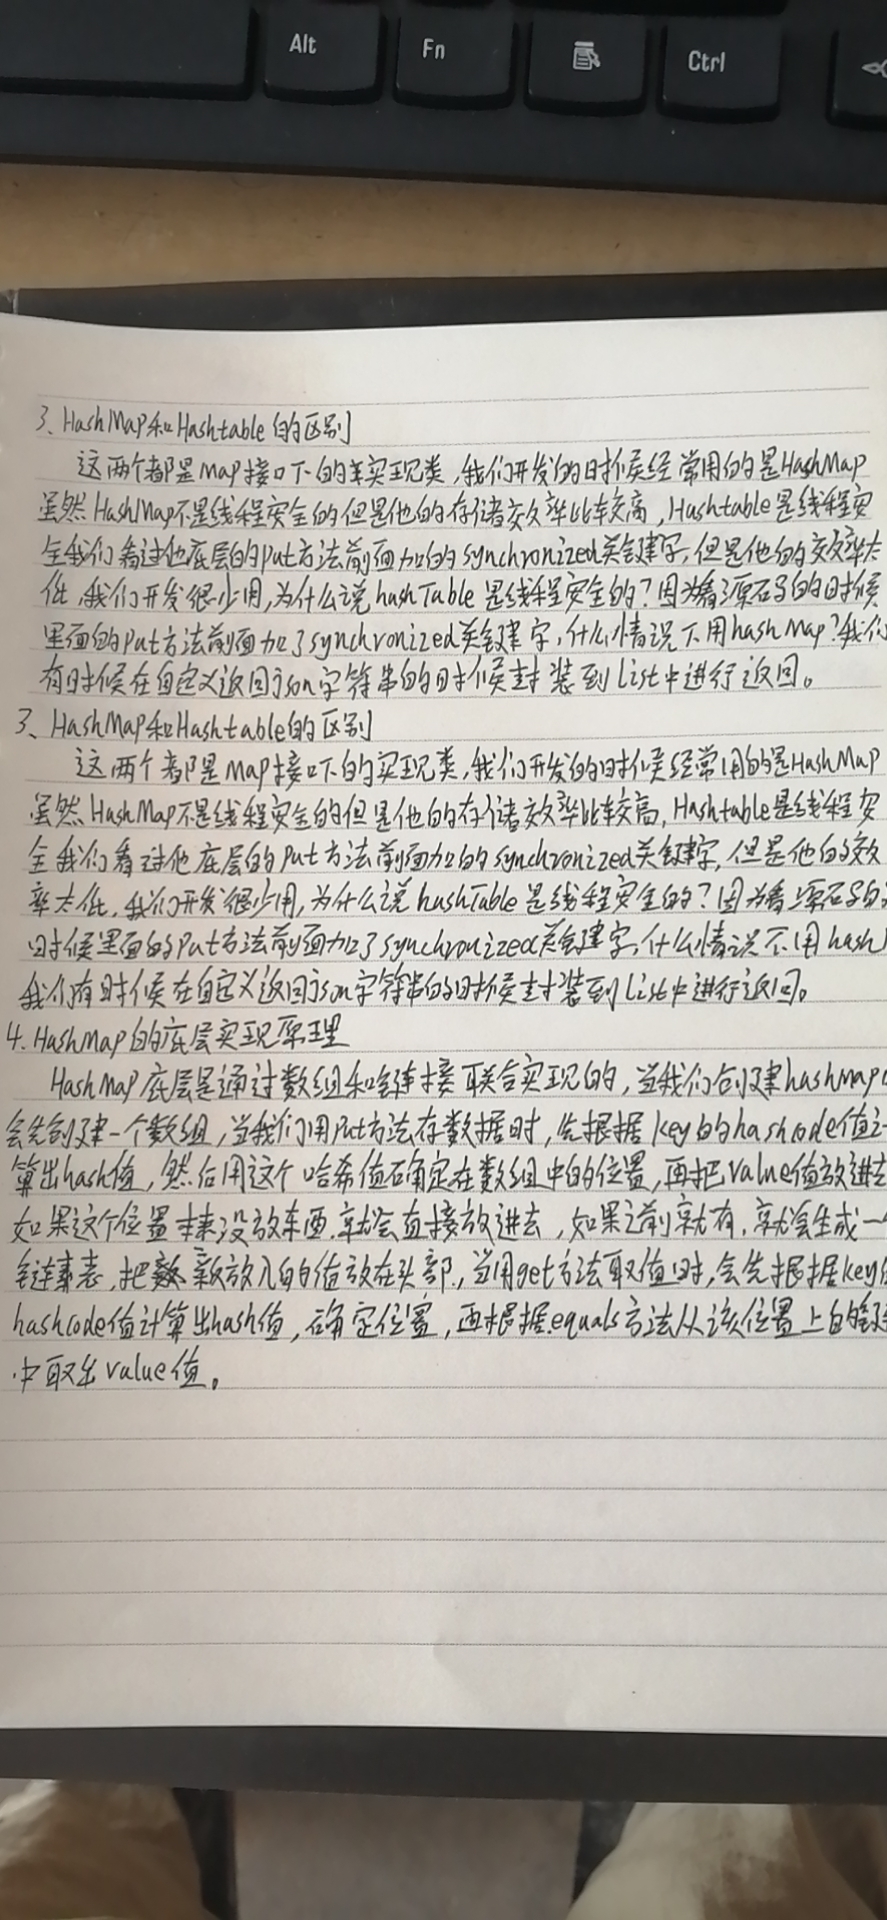 Alt Fn Ctrl
3、HashMap和Hashtable的区别
这两个都是Map接口下的实现类,我们开发的时候经常用的是HashMap
虽然HashMap不是线程安全的但是他的存储效率比较高,Hashtable是线程安
全我们看过他底层的put方法前面加的synchronized关键字,但是他的效率太
低,我们开发很少用,为什么说hashTable是线程安全的?因为看源码的时候
里面的put方法前面加了synchronized关键字,什么情况下用hashMap?我们
有时候在自定义返回json字符串的时候封装到list中进行返回。
3、HashMap和Hashtable的区别
这两个都是Map接口下的实现类,我们开发的时候经常用的是HashMap
虽然HashMap不是线程安全的但是他的存储效率比较高,Hashtable是线程安
全我们看过他底层的put方法前面加的synchronized关键字,但是他的效
率太低,我们开发很少用,为什么说hashTable是线程安全的?因为看源码
时候里面的put方法前面加了synchronized关键字,什么情况下用hash
我们有时候在自定义返回json字符串的时候封装到list中进行返回。
4.HashMap的底层实现原理
HashMap底层是通过数组和链接联合实现的,当我们创建hashmap
会先创建一个数组,当我们用put方法存数据时,先根据key的hashcode值
算出hash值,然后用这个哈希值确定在数组中的位置,再把value值放进去
如果这个位置本来没放东西,就会直接放进去,如果之前就有,就会生成一
链表,把新放入的值放在头部,当用get方法取值时,会先根据key
hashcode值计算出hash值,确定位置,再根据equals方法从该位置上的
中取出value值。